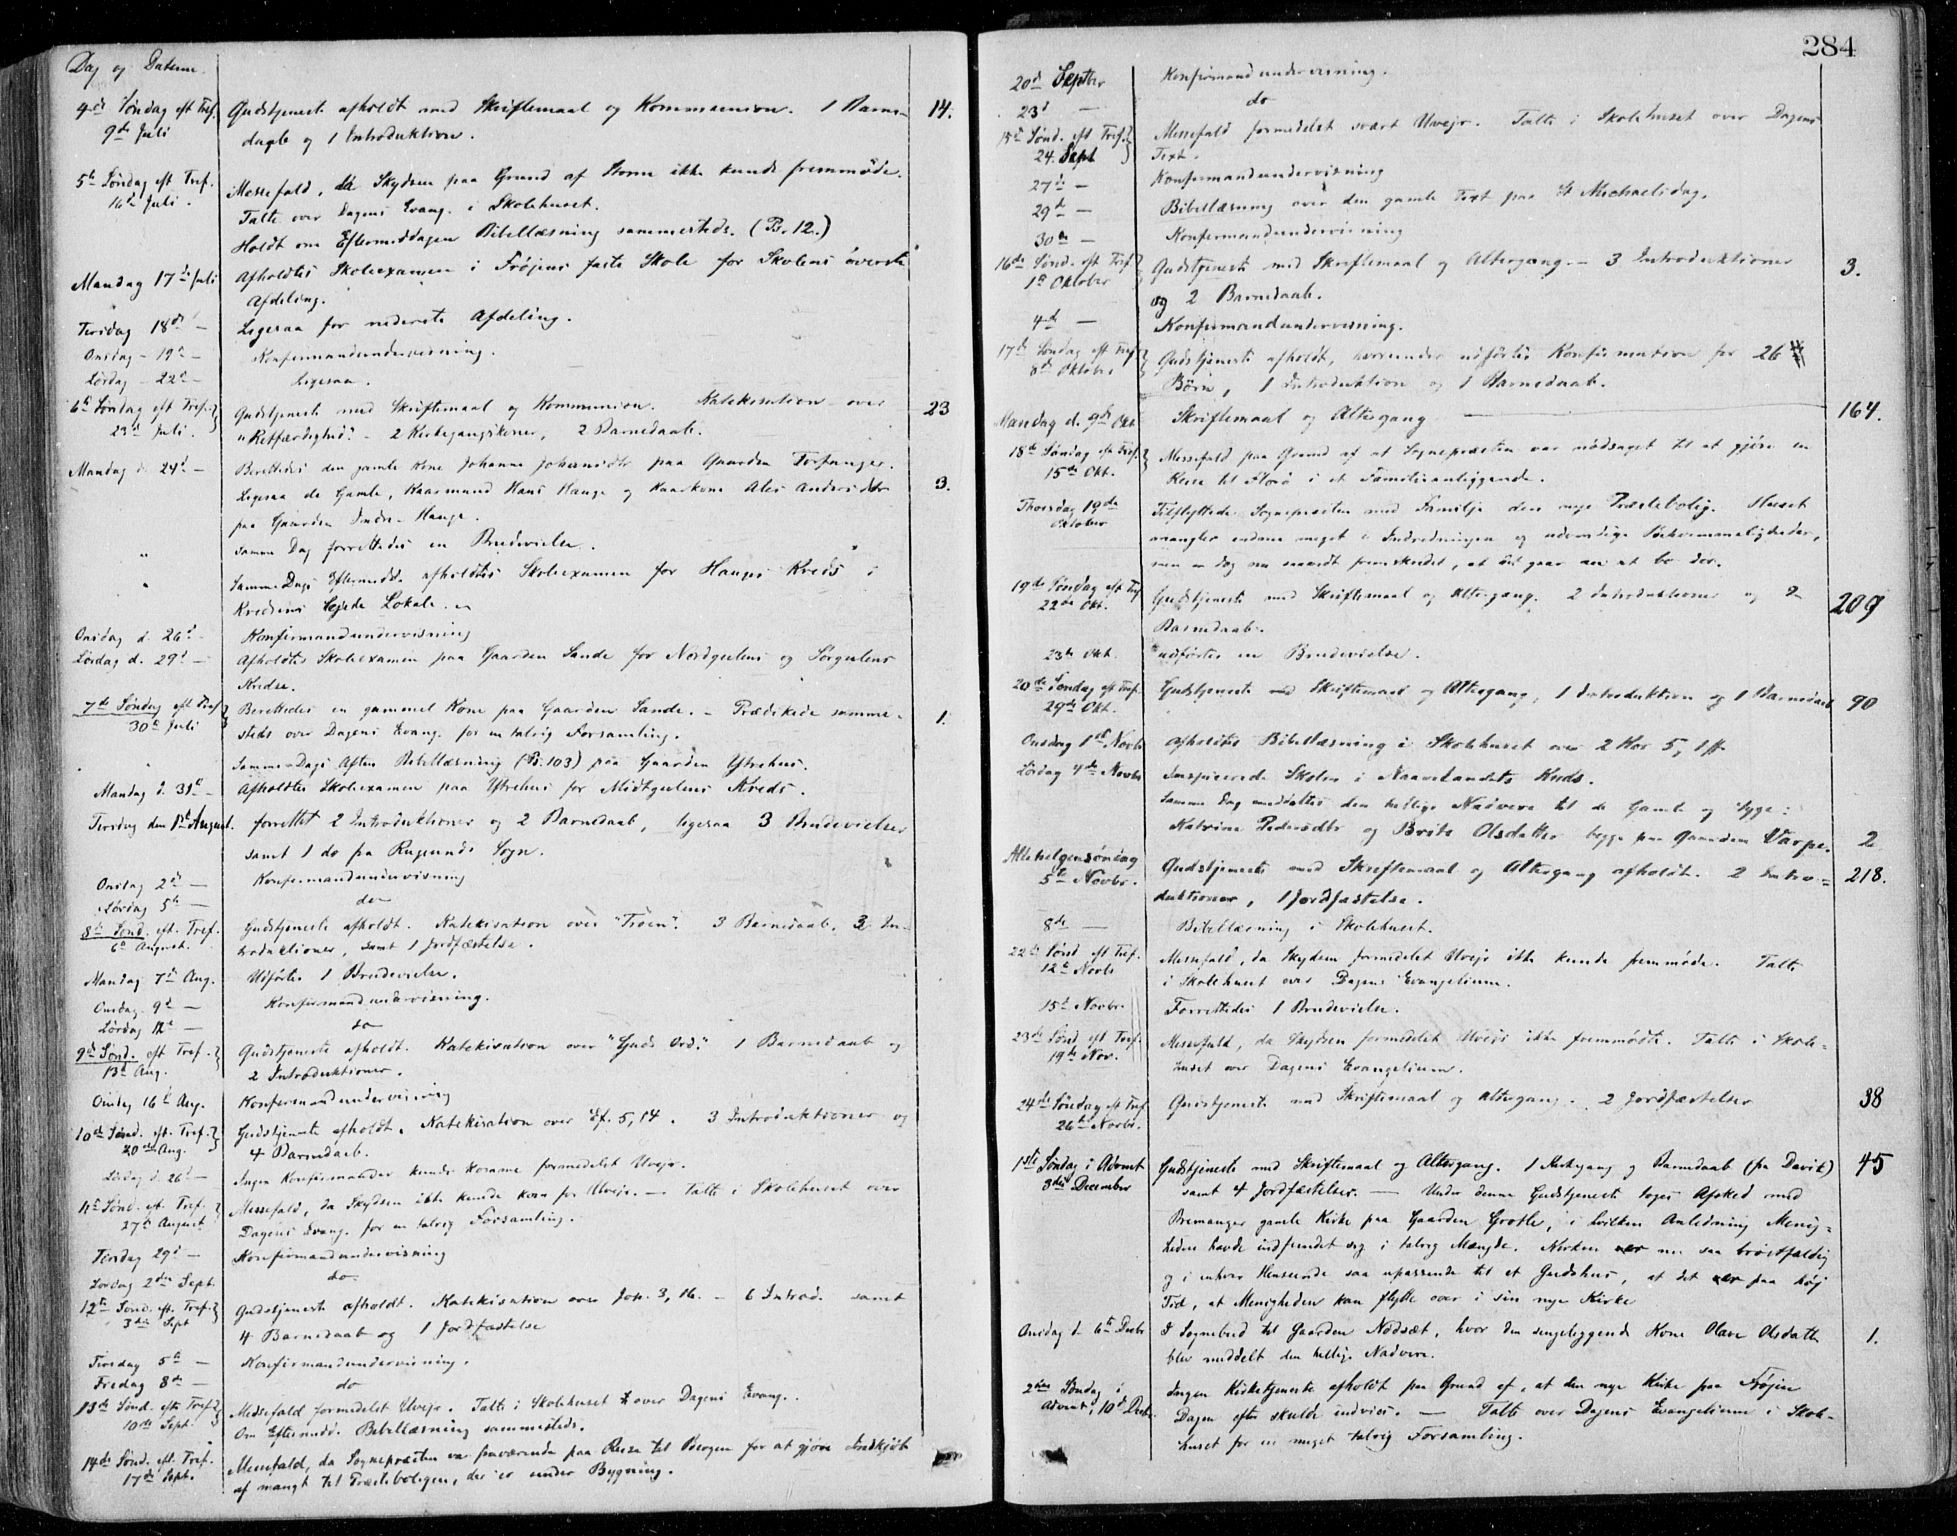 Dag og Datum.
4de Søndag eft Tref. Gudstjeneste afholdt med Skriftemaal og Kommunion. 1 Barne- 14.
9de Juli daab og 1 Introduktion.
5te Søndag eft. Tref. Messefald, da Skydsen paa Grund af Storm ikke kunde fremmøde.
16de Juli. Talte over Dagens Evang. i Skolehuset.
Holdt om Eftermiddagen Bibellæsning sammesteds. (Ps. 12.)
Mandag 17de Juli Afholdtes Skoleexamen i Frøjens faste Skole for Skolens øverste
Afdeling.
Tirsdag 18de — Ligesaa for nederste Afdeling.
Onsdag - 19de — Konfirmandundervisning.
Lørdag - 22de — Ligesaa.
6te Søndag eft Tref. Gudstjeneste med Skriftemaal og Kommunion. Katekisation over 23
23de Juli. "Retfærdighed". - 2 Kirkegangskoner, 2 Barnedaab.
Mandag d. 24de — Berettedes den gamle Kone Johanna Johannisdtr paa Gaarden Torfanger.
Ligesaa de Gamle, Kaarmand Hans Hauge og Kaarkone Ales Andersdtr 3.
paa Gaarden Indre-Hauge.
" Samme Dag forrettedes en Brudevielse.
" Samme Dags Eftermidd. afholdtes Skoleexamen for Hauges Kreds i
Kredsens lejede Lokale.
Onsdag d. 26de — Konfirmandundervisning
Lørdag d. 29de — Afholdtes Skoleexamen paa Gaarden Sande for Nordgulens og Sørgulens
Kredse.
7de Søndag eft Tref Berettedes en gammel Kone paa Gaarden Sande. - Prædikede samme- 1.
30te Juli steds over Dagens Evang. for en talrig Forsamling.
Samme Dags Aften Bibellæsning (Ps. 103) paa Gaarden Ytrehus.
Mandag d. 31te — Afholdtes Skoleexamen paa Ytrehus for Midtgulens Kreds.
Tirsdag den 1ste August. forrettet 2 Introduktioner og 2 Barnedaab, ligesaa 3 Brudevielser
samt 1 do fra Rugsunds Sogn.
Onsdag 2de — Konfirmandundervisning
Lørdag 5te — do
8de Sønd. eft. Tref. Gudstjeneste afholdt. Katekisation over "Troen". 3 Barnedaab, 3 In-
6te August. troduktioner, samt 1 Jordfæstelse.
Mandag 7de Aug. Udførtes 1 Brudevielse.
Onsdag 9de — Konfirmandundervisning.
Lørdag 12te — do
9de Sønd. eft Tref. Gudstjeneste afholdt. Katekisation over "Guds Ord". 1 Barnedaab og
13de Aug. 2 Introduktioner.
Onsdag 16de Aug. Konfirmandundervisning
10de Sønd. eft. Tref. Gudstjeneste afholdt. Katekisation over Ef. 5, 14. 3 Introduktioner og
20de Aug. 4 Barnedaab.
Lørdag d. 26de — Ingen Konfirmander kunde komme formedelst Uvejr.
11te Sønd. eft. Tref. Messefald, da Skydsen ikke kunde kom for Uvejr. — Talte i Skolehuset over
27de August Dagens Evang. for en talrig Forsamling.
Tirsdag 29de — Konfirmandundervisning
Lørdag 2den Sept. do
12te Sønd. eft. Tref. Gudstjeneste afholdt. Katekisation over Joh. 3, 16. - 6 Introd. samt
3die Sept 4 Barnedaab og 1 Jordfæstelse
Tirsdag 5te — Konfirmandundervisning.
Fredag 8de — do
13de Sønd. eft. Tref. Messefald formedelst Uvejr. Talte i Skolehuset over Dagens Evang.
10de Sept. Om Eftermidd. Bibellæsning sammesteds.
14de Sønd. eft. Tref. Messefald, da Sognepræsten var fraværende paa Reise til Bergen for at gjøre Indkjøb
17de Sept. af mangt til Præsteboligen, der er under Bygning.
284
20de Septbr Konfirmandundervisning.
23de — do
15de Sønd. eft Tref. Messefald formedelst svært Uvejr. Talte i Skolehuset over Dagens
24. Sept Text.
27de — Konfirmandundervisning
29de — Bibellæsning over den gamle Text paa St Michaelisdag.
30te — Konfirmandundervisning
16de Sønd. eft Tref Gudstjeneste med Skriftemaal og Altergang. - 3 Introduktioner 3.
1ste Oktober og 2 Barnedaab.
4de — Konfirmandundervisning.
17de Søndag eft Tref Gudstjeneste afholdt, hvorunder udførtes Konfirmation for 26
8de Oktober Børn, 1 Introduktion og 1 Barnedaab.
Mandag d. 9de Okt. Skriftemaal og Altergang 164.
18de Søndag eft Tref. Messefald paa Grund af at Sognepræsten var nødsaget til at gjøre en
15de Okt. Reise til Florø i et Familieanliggende.
Thorsdag 19de Tilflyttede Sognepræsten med Familje den nye Præstebolig. Huset
Oktober mangler endnu meget i Indredningen og udvendige Bekvemmeligheder,
men er dog nu saavidt fremskredet, at det gaar an at bo der.
19de Søndag eft Tref Gudstjeneste med Skriftemaal og Altergang. 2 Introduktioner og 2 209
22de Okt. Barnedaab.
23de Okt. udførtes en Brudevielse.
20de Søndag eft Tref. Gudstjeneste med Skriftemaal og Altergang, 1 Introduktion og 1 Barnedaab 90
29de Okt.
Onsdag 1ste Novbr afholdtes Bibellæsning i Skolehuset over 2 Kor 5, 1 ff
Lørdag 4de Novbr Inspicerede Skolen i Naavelandets Kreds.
Samme Dag meddeltes den hellige Nadvere til de Gamle og Syge:
Katrina Pedersdtr og Brite Olsdatter begge paa Gaarden Varpe. 2
Allehelgensøndag Gudstjeneste med Skriftemaal og Altergang afholdt. 2 Intro- 218.
5te Novbr. duktioner, 1 Jordfæstelse.
8de — Bibellæsning i Skolehuset.
22de Sønd. eft Tref. Messefald, da Skydsen formedelst Uvejr ikke kunde fremmøde. Talte
12te Novbr i Skolehuset over Dagens Evangelium.
15de Novbr. Forrettedes 1 Brudevielse.
23de Sønd. eft Tref. Messefald, da Skydsen formedelst Uvejr ikke fremmødte. Talte i Skole-
19de Nov. huset over Dagens Evangelium.
24de Søndag eft Tref Gudstjeneste med Skriftemaal og Altergang. 2 Jordfæstelser 38
26de Novbr.
1ste Søndag i Advent Gudstjeneste med Skriftemaal og Altergang. 1 Kirkegang og Barnedaab (fra Davik) 45
3die December samt 4 Jordfæstelser. — Under denne Gudstjeneste toges Afsked med
Bremanger gamle Kirke paa Gaarden Grotle, i hvilken Anledning Menig-
heden havde indfundet sig i talrig Mængde. Kirken er nu saa brøstfældig
og i enhver Henseende saa upassende til et Gudshus, at det er paa høj
Tid, at Menigheden kan flytte over i sin nye Kirke
Onsdag d. 6te Decbr I Sognebud til Gaarden Nødsæt, hvor den sengeliggende Kone Olave Olsdatter 1.
blev meddelt den hellige Nadvere.
2den Søndag i Ingen Kirketjeneste afholdt paa Grund af, at den nye Kirke paa Frøjen
Advent, 10de Decbr. Dagen efter skulde indvies. — Talte over Dagens Evangelium i Skole-
huset for en meget talrig Forsamling.